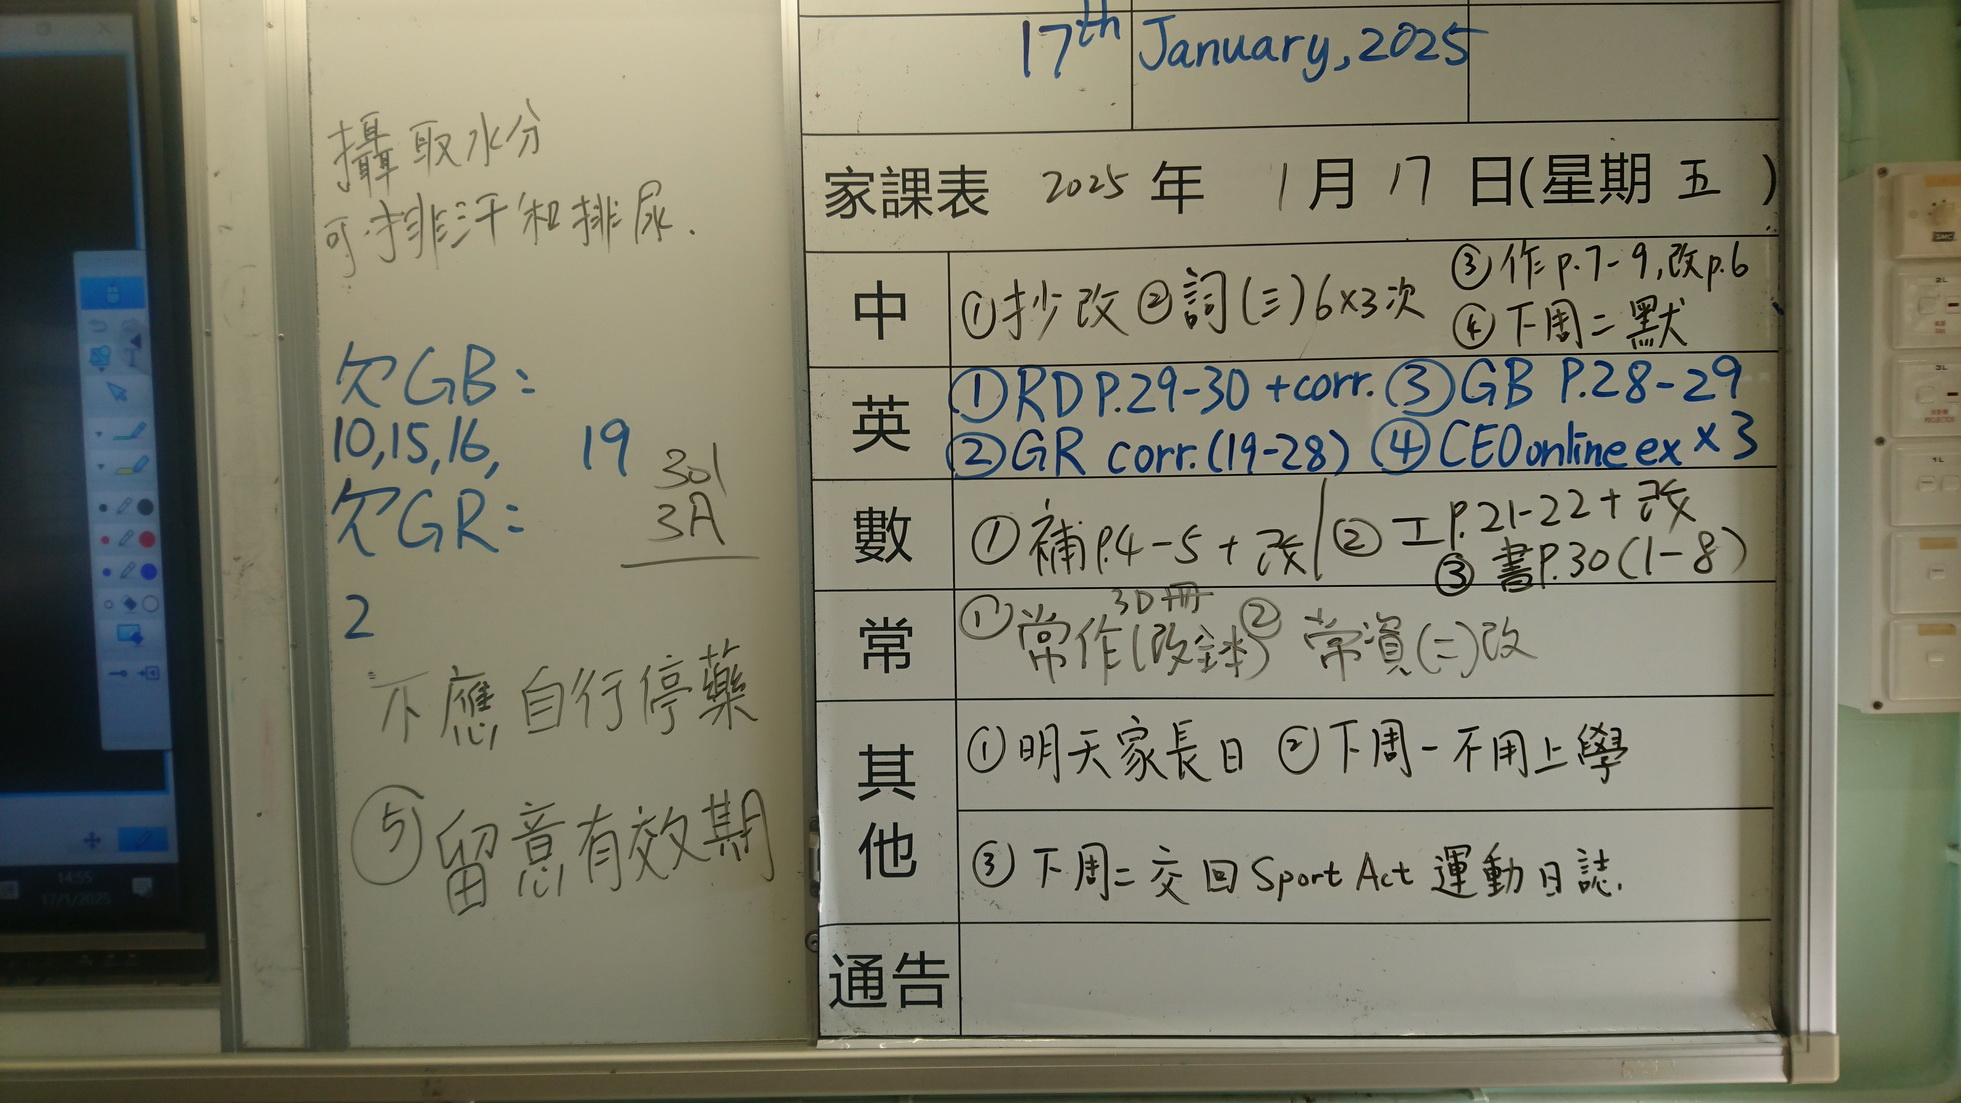 攝取水分
可排汗和排尿.
欠GB:
10,15,16, 19
301
3A
欠GR:
2
不應自行停藥
⑤留意有效期
17th January, 2025
家課表 2025 年 1 月 17 日(星期 五 )
中
①抄改 ②詞(三)6×3次
③作p.7-9,改p.6
④下周二默
英
①RD P.29-30 +corr. ③GB P.28-29
②GR corr.(19-28) ④CEO online ex × 3
數
①補P.4-5 + 改 ②工P.21-22 + 改
③書P.30(1-8)
常
3D冊
①常作(改錄) ②常資(二)改
其他
①明天家長日 ②下周一不用上學
③下周二交回Sport Act 運動日誌.
通告
14:55
17/1/2025